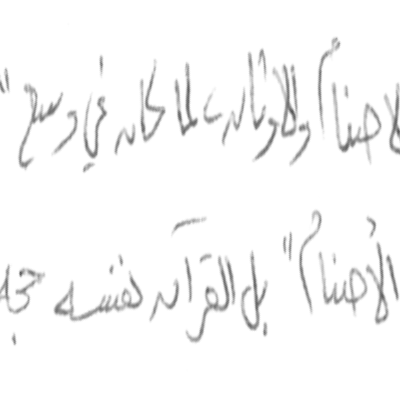 الاصنام والاوثان لما كان في وسع "
الأصنام" بل القرآن نفسه